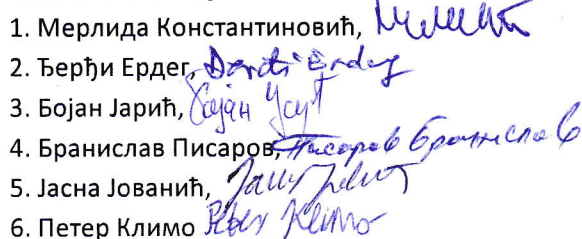 1. Мерлида Константиновић,
2. Ђерђи Ердег, Đerđi Erdeg
3. Бојан Јарић, Бојан
4. Бранислав Писаров, Писаров Бранислав
5. Јасна Јованић,
6. Петер Климо Peter Klimo